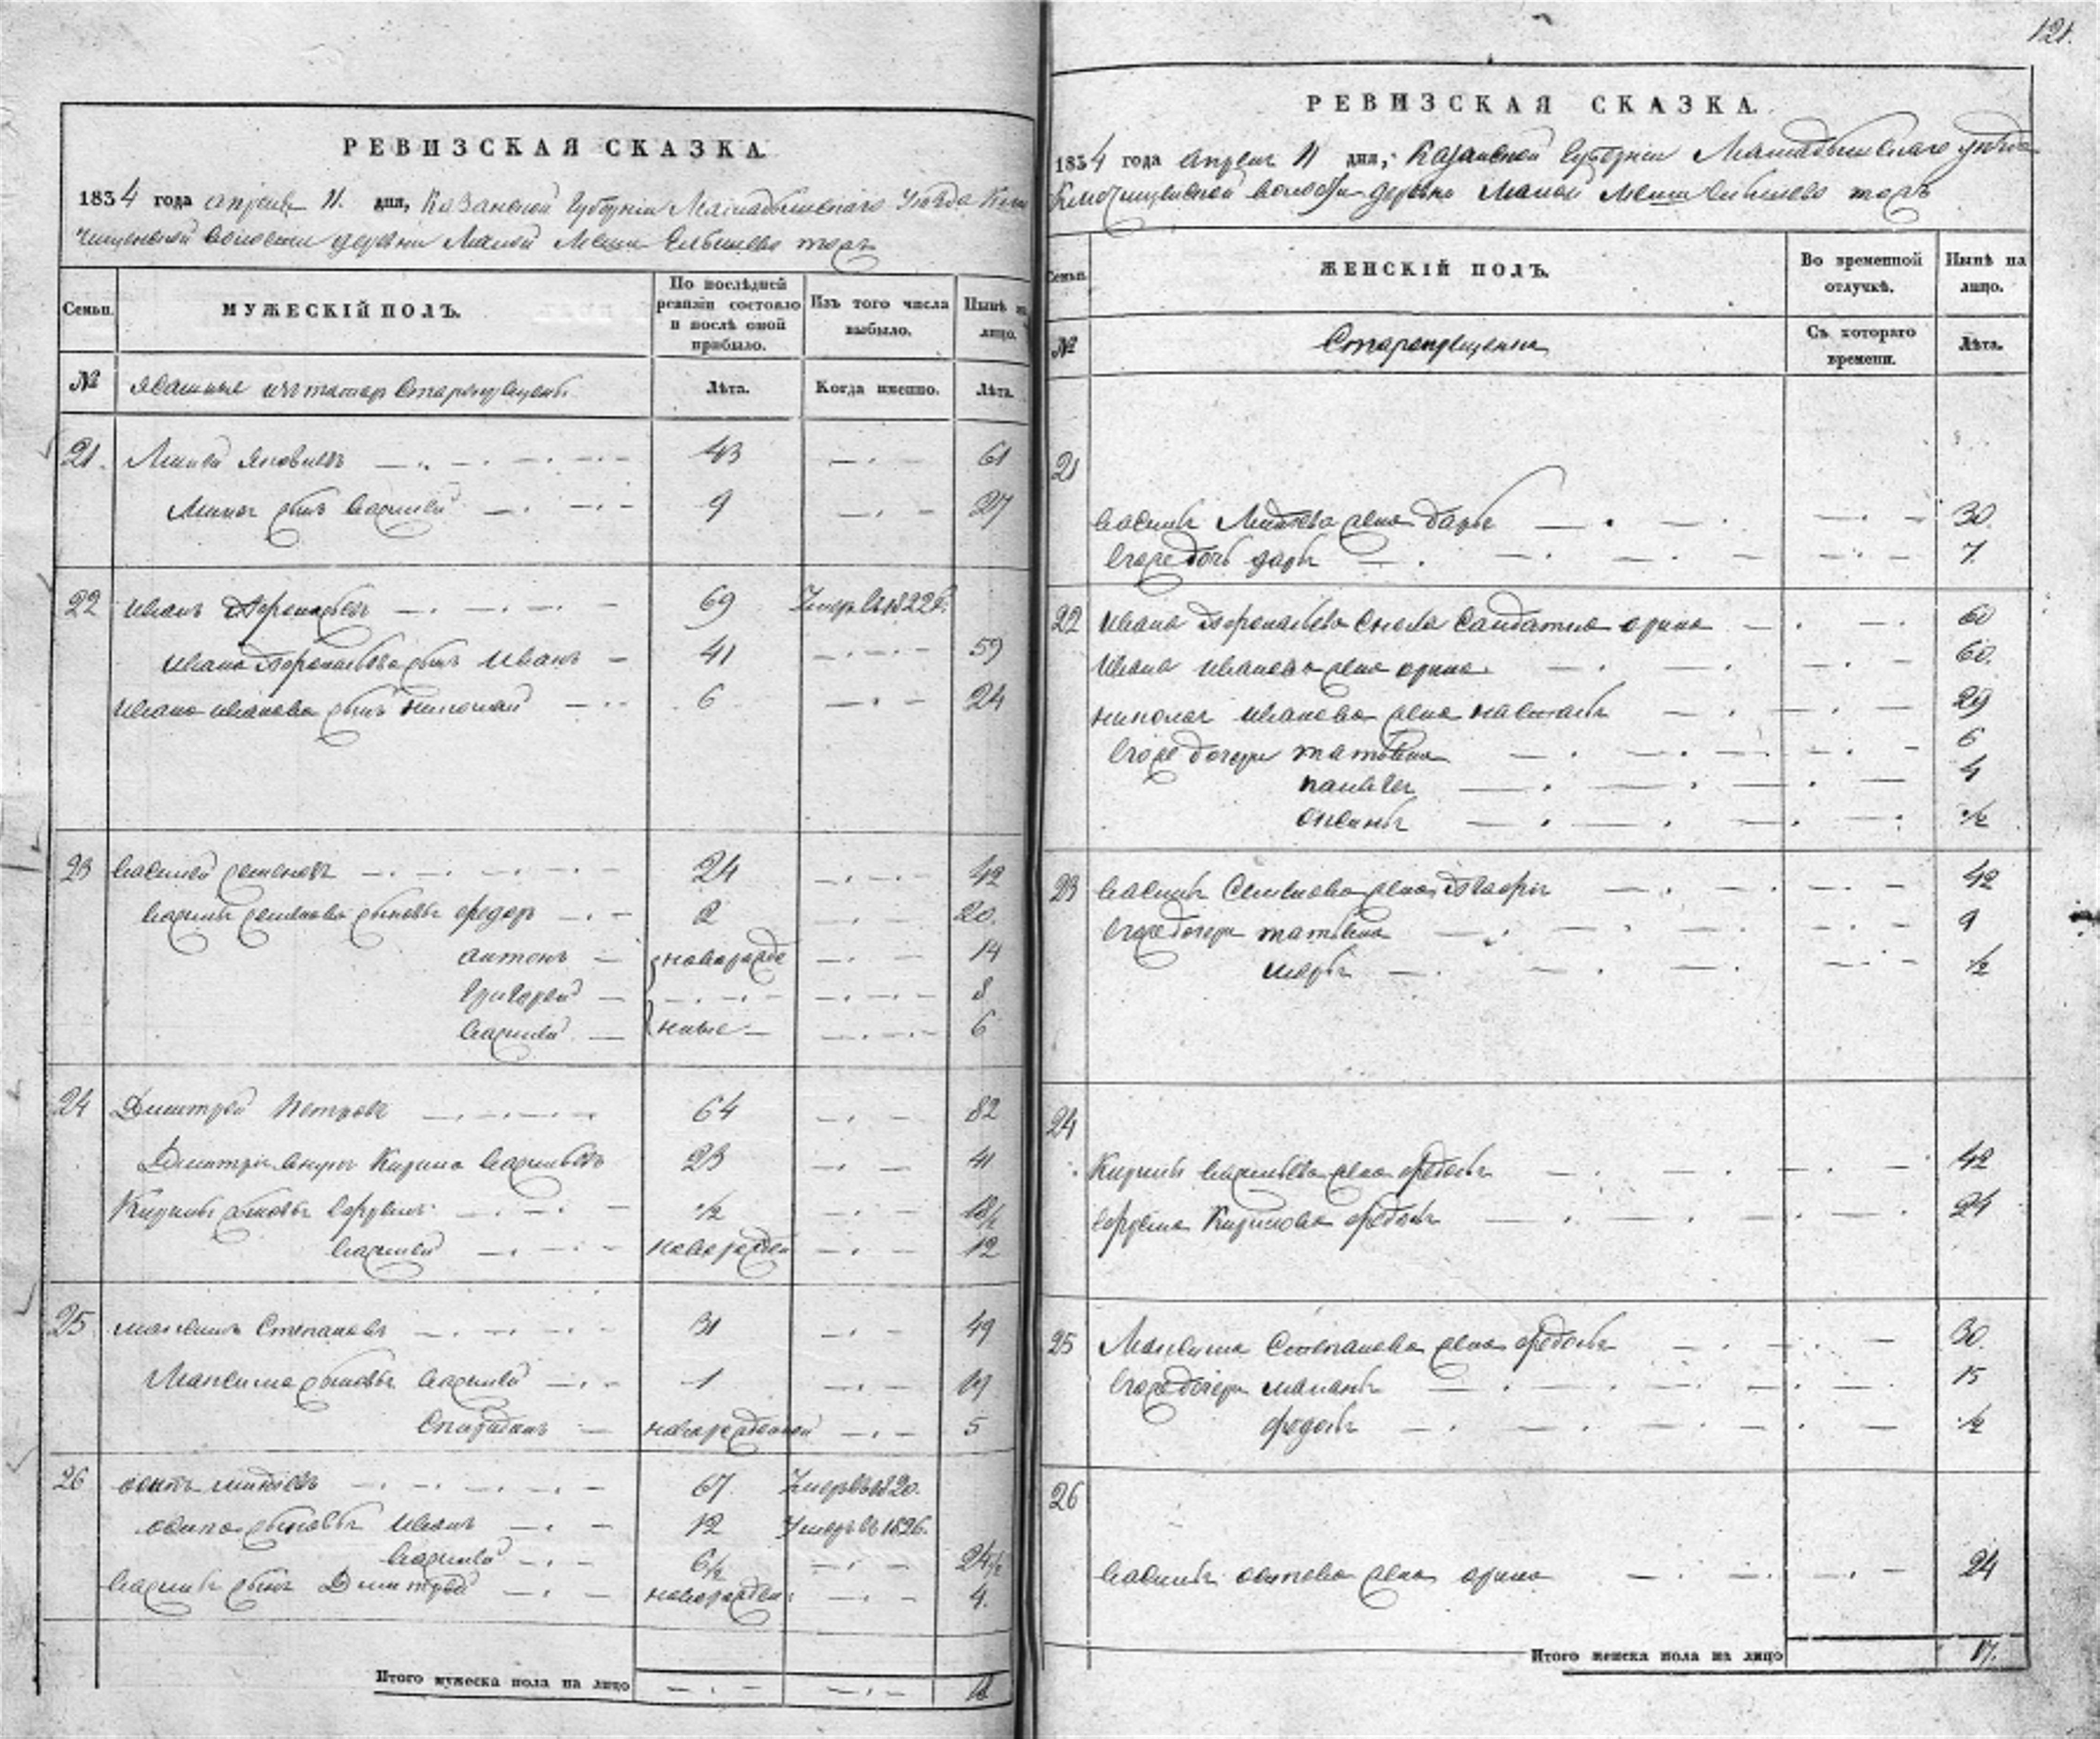 121.
РЕВИЗСКАЯ СКАЗКА.
1834 года апреля 11 дня, Казанской Губернии Мамадышского Уезда
волости деревни Малой Меши Елышево тожъ
Семьи.
МУЖЕСКІЙ ПОЛЪ.
По послѣдней ревизіи состояло и послѣ оной прибыло.
Изъ того числа выбыло.
Нынѣ на лицо.
№
Ясашные изъ татар Старокрещены
Лѣта.
Когда именно.
Лѣта.
21. 43 61
сынъ Василей 9 27
22 Иванъ 69 Умеръ въ 1822г.
Ивана сынъ Иванъ 41 59
Ивана Иванова сынъ Николай 6 24
23 Василей Семеновъ 24 42
Василья Семенова сыновья Федоръ 2 20.
Антонъ новорожде 14
Григорей 8
Василей ные 6
24 Дмитрей Петровъ 64 82
Дмитрія внукъ Кирила Васильевъ 23 41
Кирилы сыновья Ефремъ ½ 18½
Василей новорожден 12
25 Максимъ Степановъ 31 49
Максима сыновья Василей 1 19
Спиридонъ новорожденной 5
26 Осипъ 67. Умеръ въ 1820.
Осипа сыновья Иванъ 12 Умеръ въ 1826.
Василей 6½ 24½
Василья сынъ Дмитрей новорожден: 4.
Итого мужеска пола на лицо 18
РЕВИЗСКАЯ СКАЗКА.
1834 года апреля 11 дня, Казанской Губерніи Мамадышскаго уезда
волости деревни Малой Меши Елышево тожъ
Семьи.
ЖЕНСКІЙ ПОЛЪ.
Во временной отлучкѣ.
Нынѣ на лицо.
№
Старокрещены
Съ котораго времени.
Лѣта.
21
Василья жена Дарья 30.
Ево же дочь Дарья 7.
22 Ивана сноха Салдатка Орина 60
Ивана Иванова жена Орина 60.
Николая Иванова жена Настасья 29
Ево же дочери Татьяна 6
Палагея 4
Оксинья ½
23 Василья Семенова жена 42
Ево же дочери Татьяна 9
Марья ½
24
Кирилы Васильева жена Федосья 42
Ефрема Кирилова Федосья 24
25 Максима Степанова жена Федосья 30.
Ево же дочери Маланья 15
Федосья ½
26
Василья Осипова жена Орина 24
Итого женска пола на лицо 17.